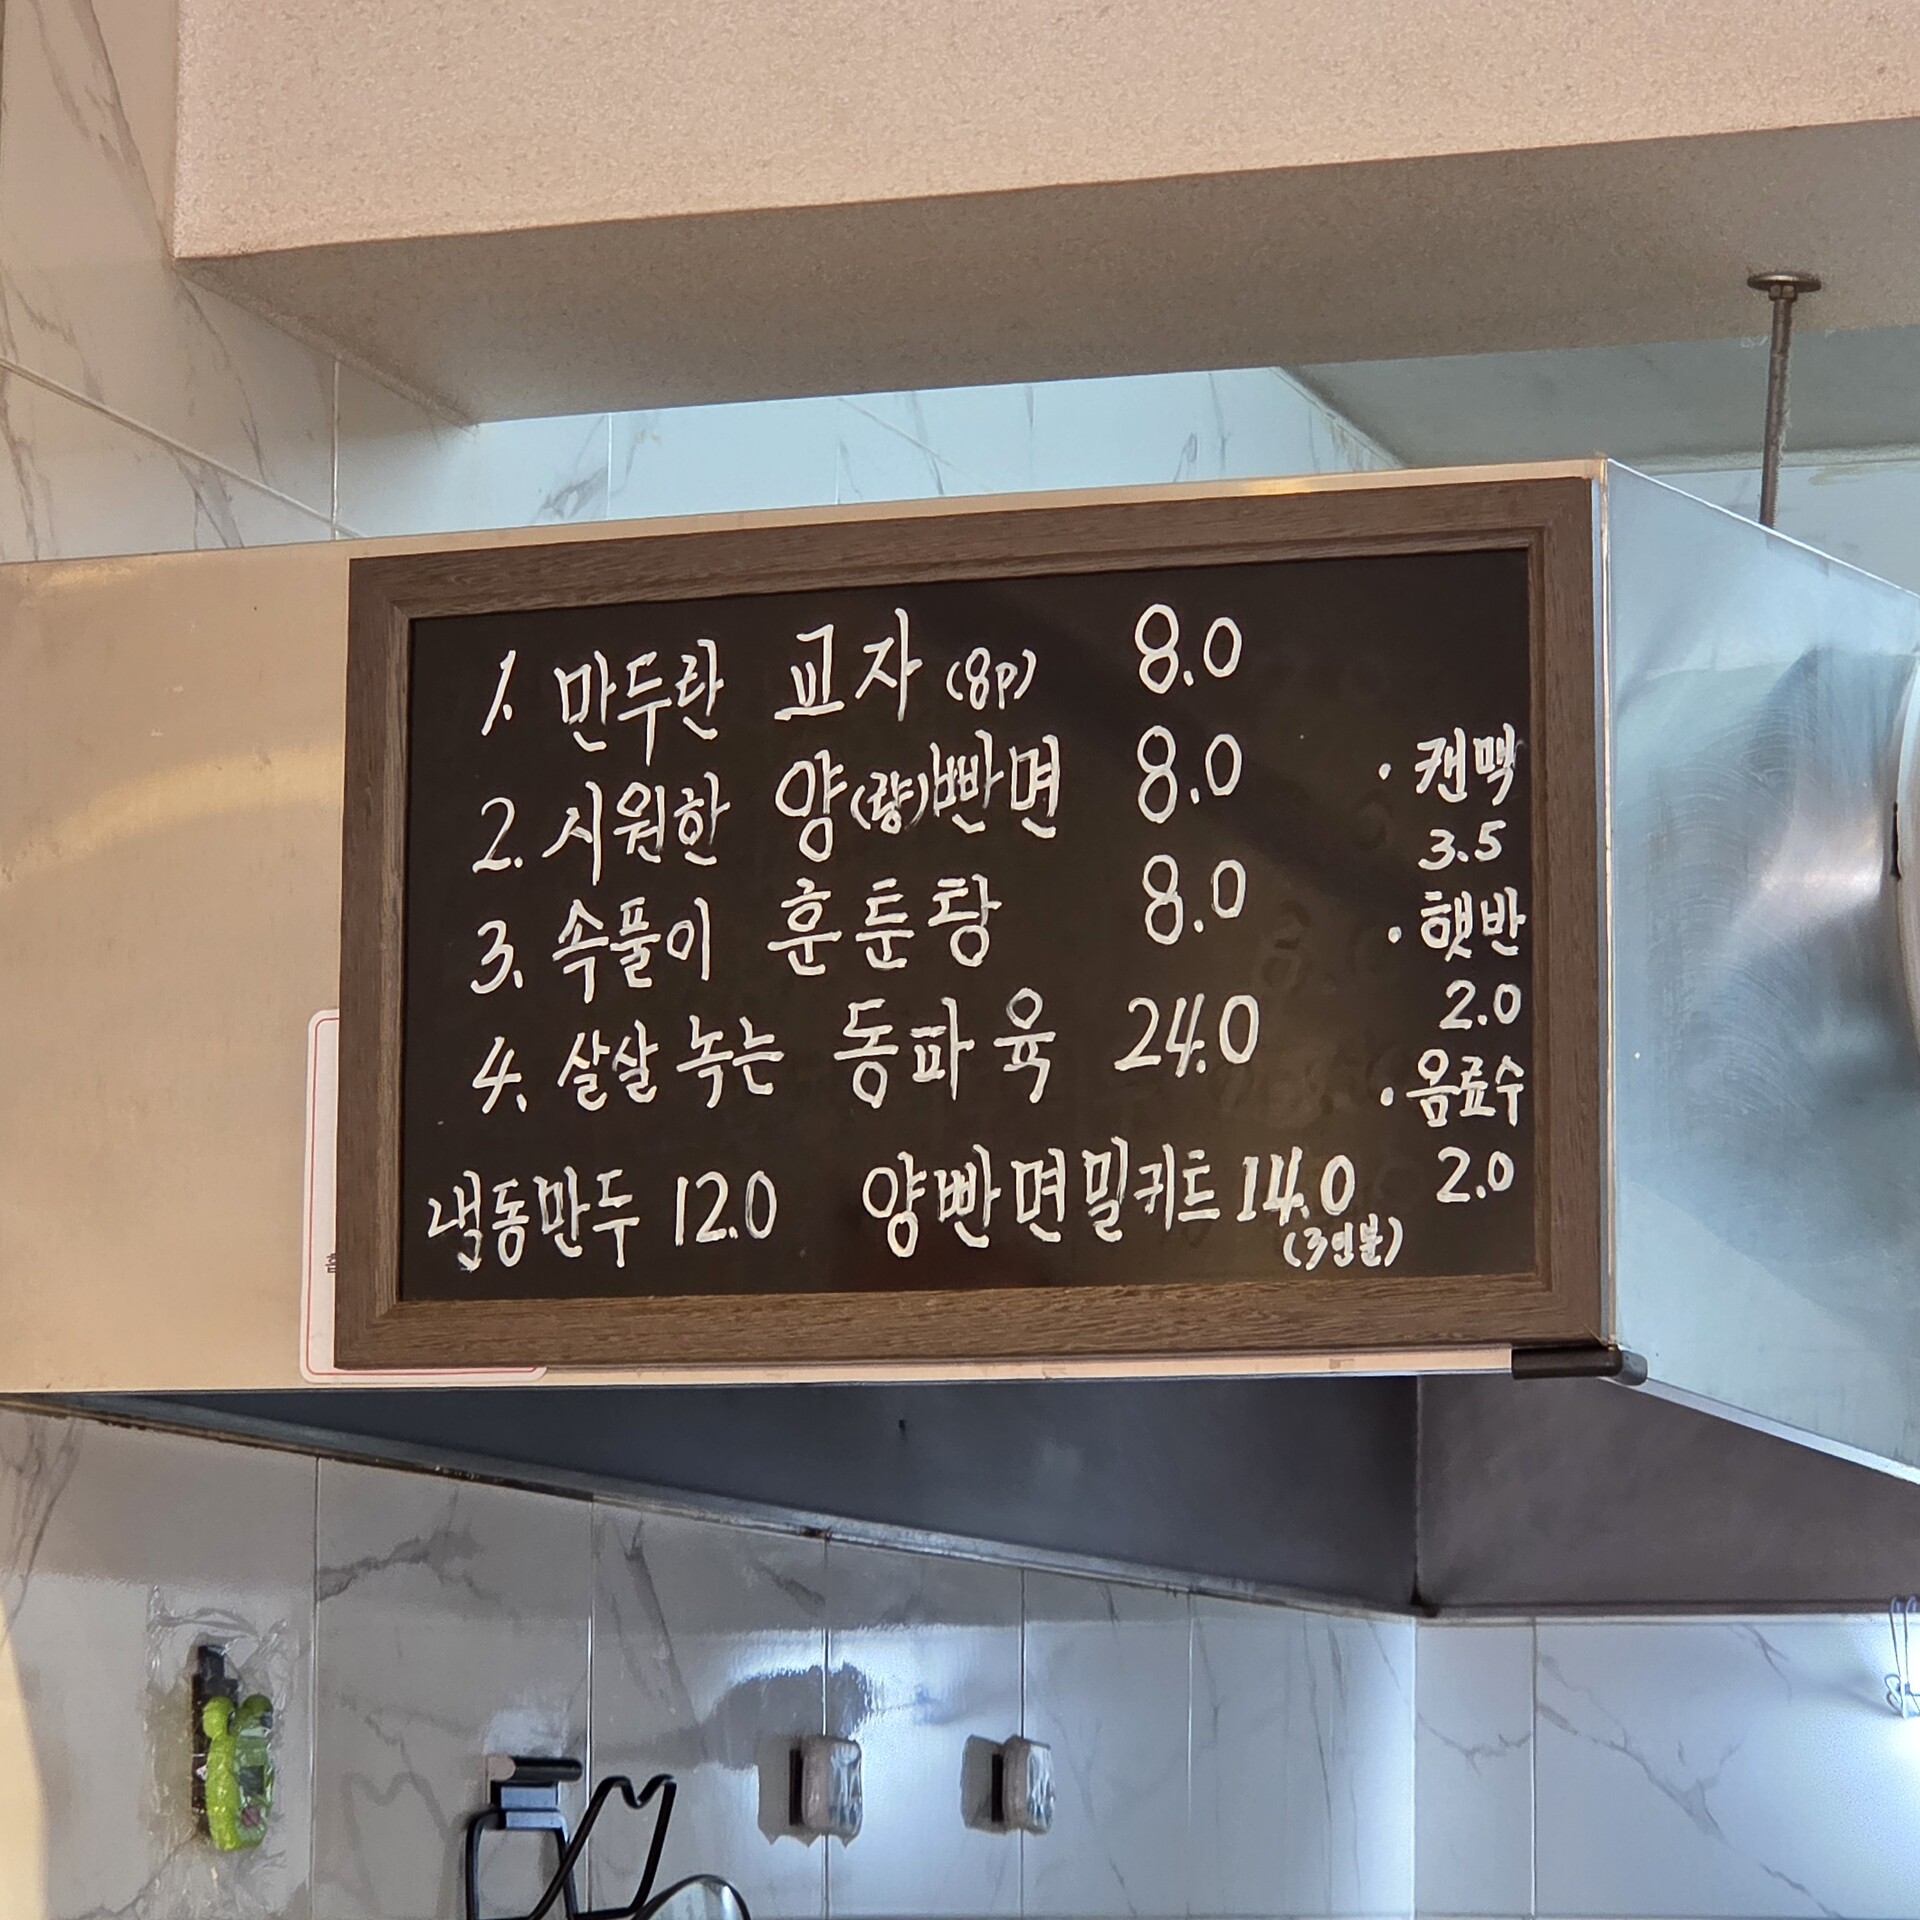 1. 만두란 교자 (8p) 8.0
2. 시원한 양(량)빤면 8.0
3. 속풀이 훈툰탕 8.0
4. 살살 녹는 동파육 24.0
냉동만두 12.0 양빤면밀키트 14.0
(3인분)
· 캔맥
3.5
· 햇반
2.0
· 음료수
2.0